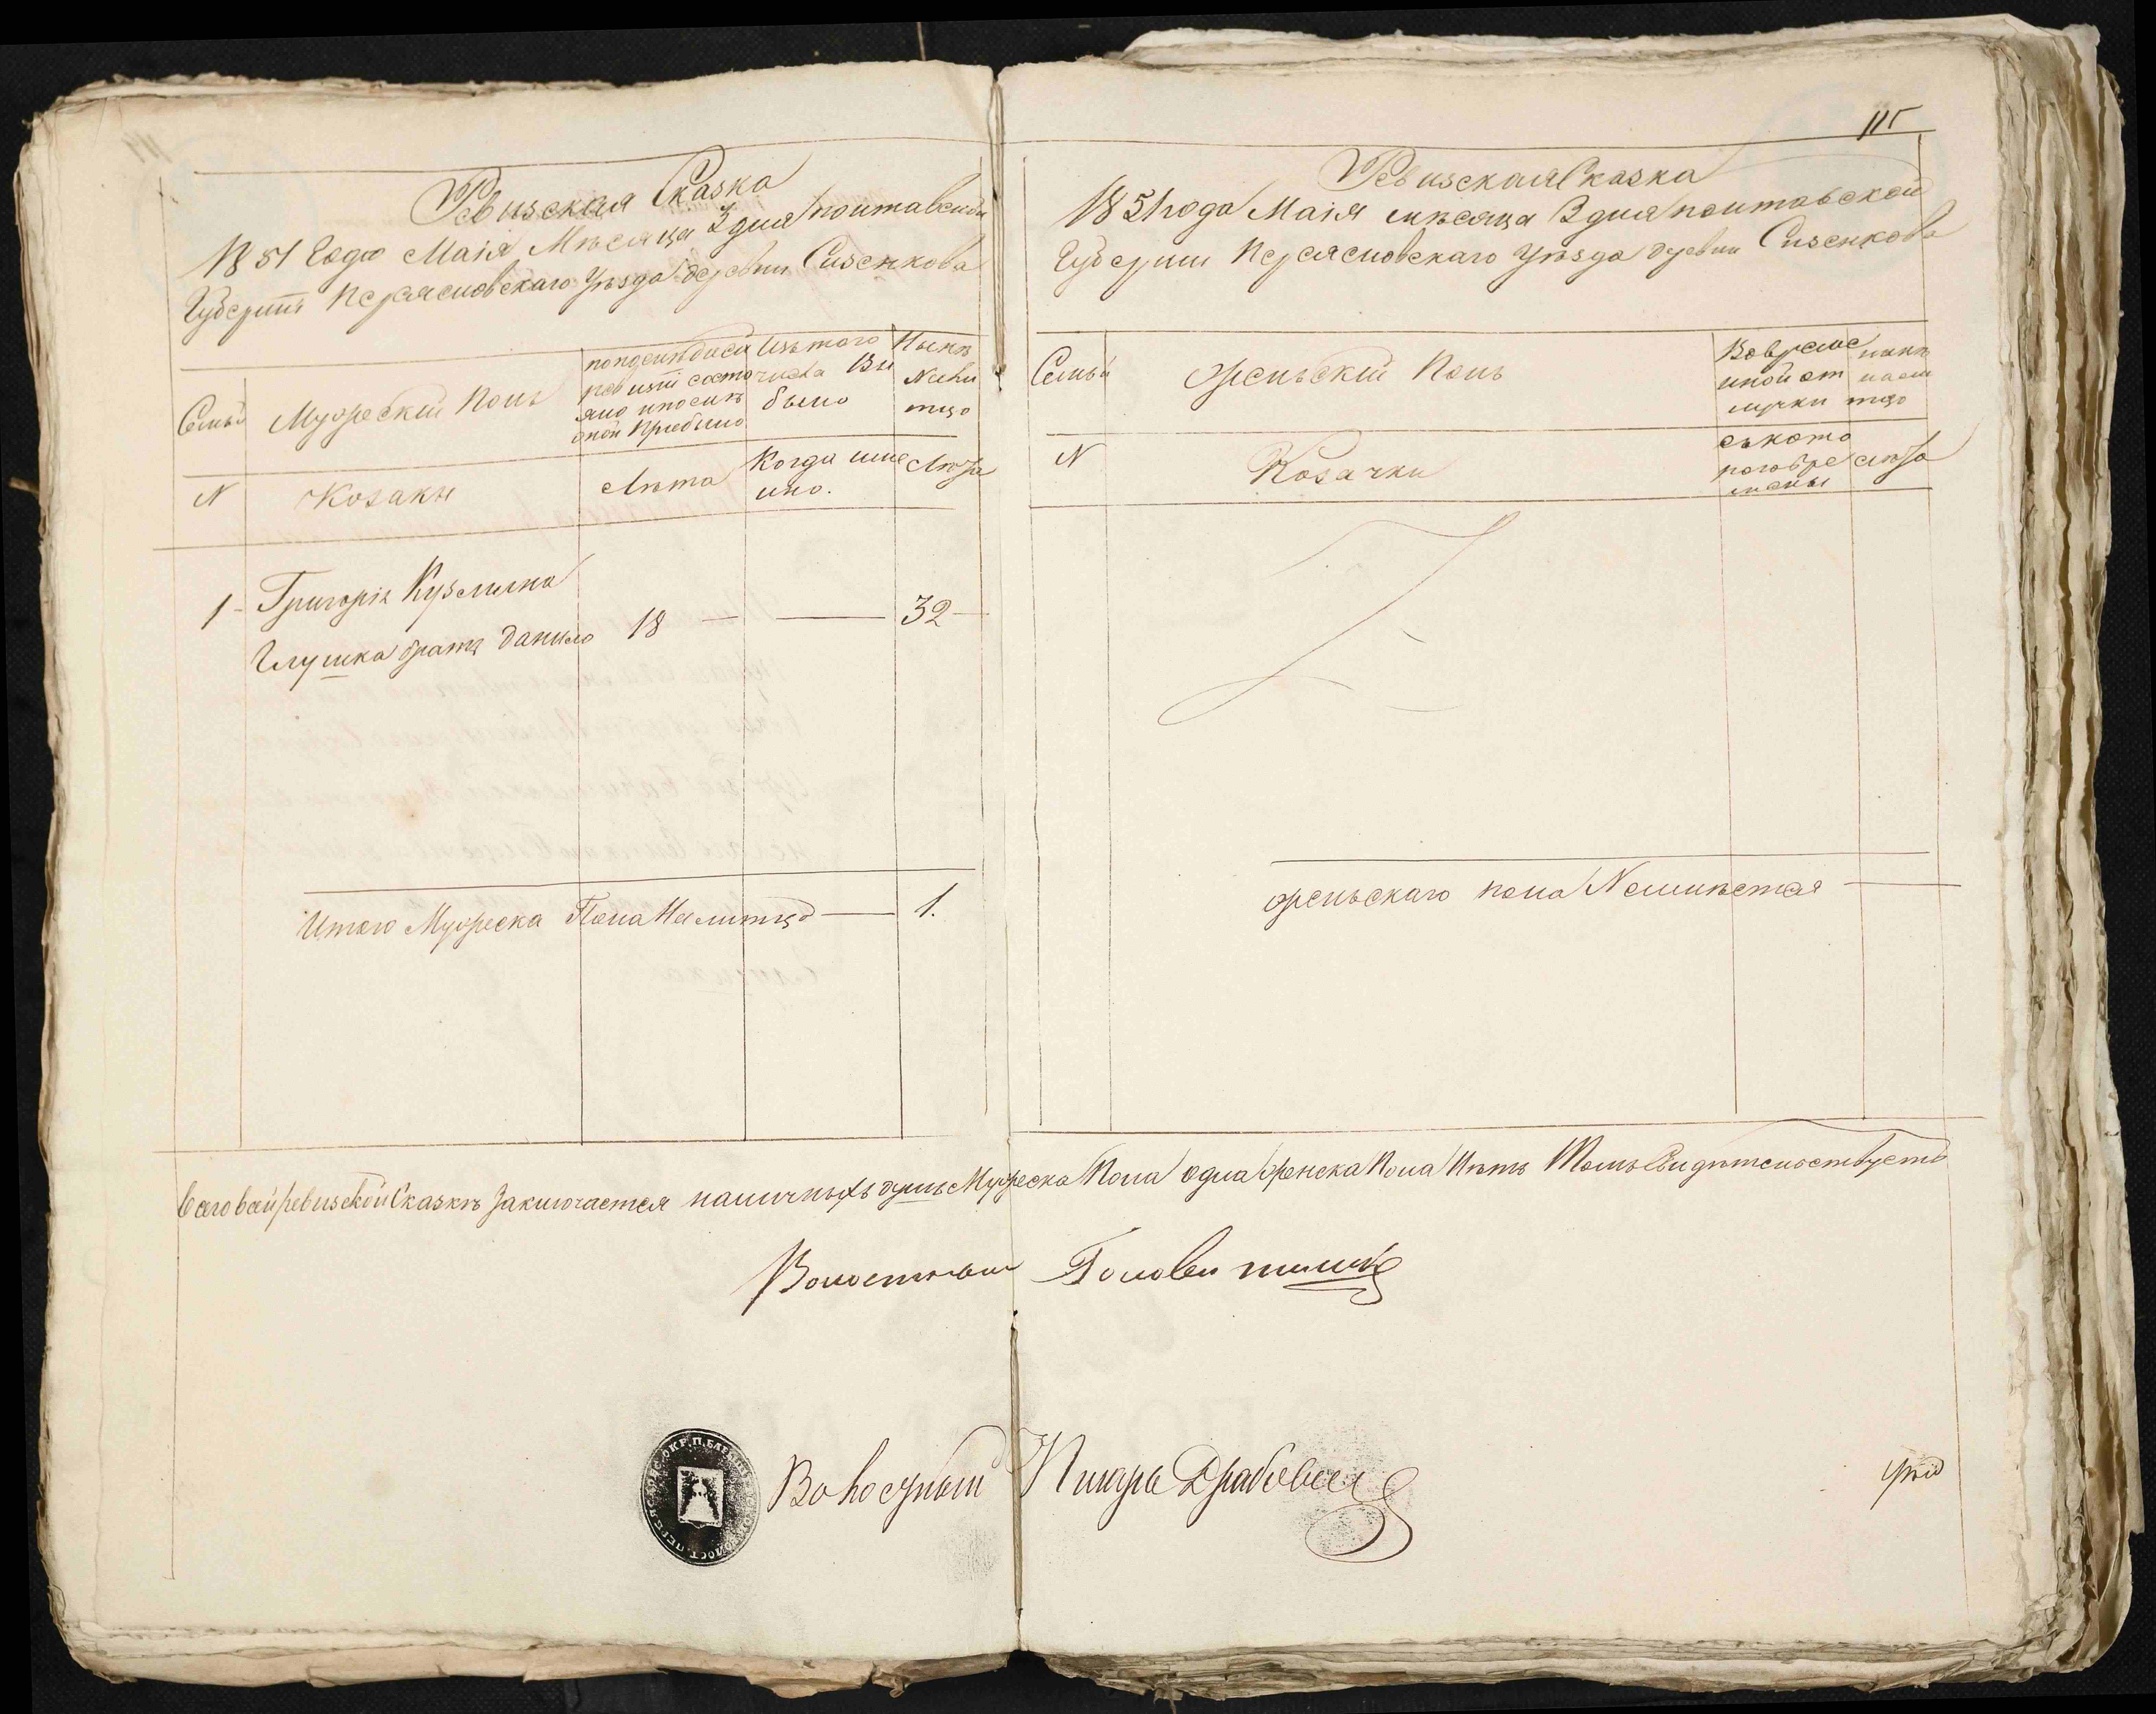 Ревизская Сказка
1851 Года Маія Мѣсяца 3 дня Полтавской
Губерніи Переясловскаго Уѣзда деревни Сизенкова
Семьи
Мужеской Полъ
поподеннѣ
ревизіи состо
яло и после
оной Прибыло
Изъ того
числа Вы
было
Нынѣ
На ли
тцо
N
Козаки
Лѣта
Когда име
нно.
Лѣта
1
Григорія Кузмина
Глушка братъ Данило
18
32
Итого Мужеска Пола На литцо
1.
115
Ревизская Сказка
1851 года Маія мѣсяца 3 дня Полтавской
Губерніи Переясловскаго Уѣзда деревни Сизенкова
Семьи
Женьский Полъ
Во време
нной от
лучки
нынѣ
на ли
тцо
N
Козачки
съ кото
рого вре
мены
лѣта
Женьскаго пола Неимѣется
Всего в сей ревизской Сказкѣ Заключается наличныхъ душъ Мужеска Пола одна Женска Пола Нѣтъ Томъ Свидѣтельствуетъ
Волостный Голова
Волосный Писарь
ПЕРЕЯС. ОКР. П.
ВОЛОСТ.